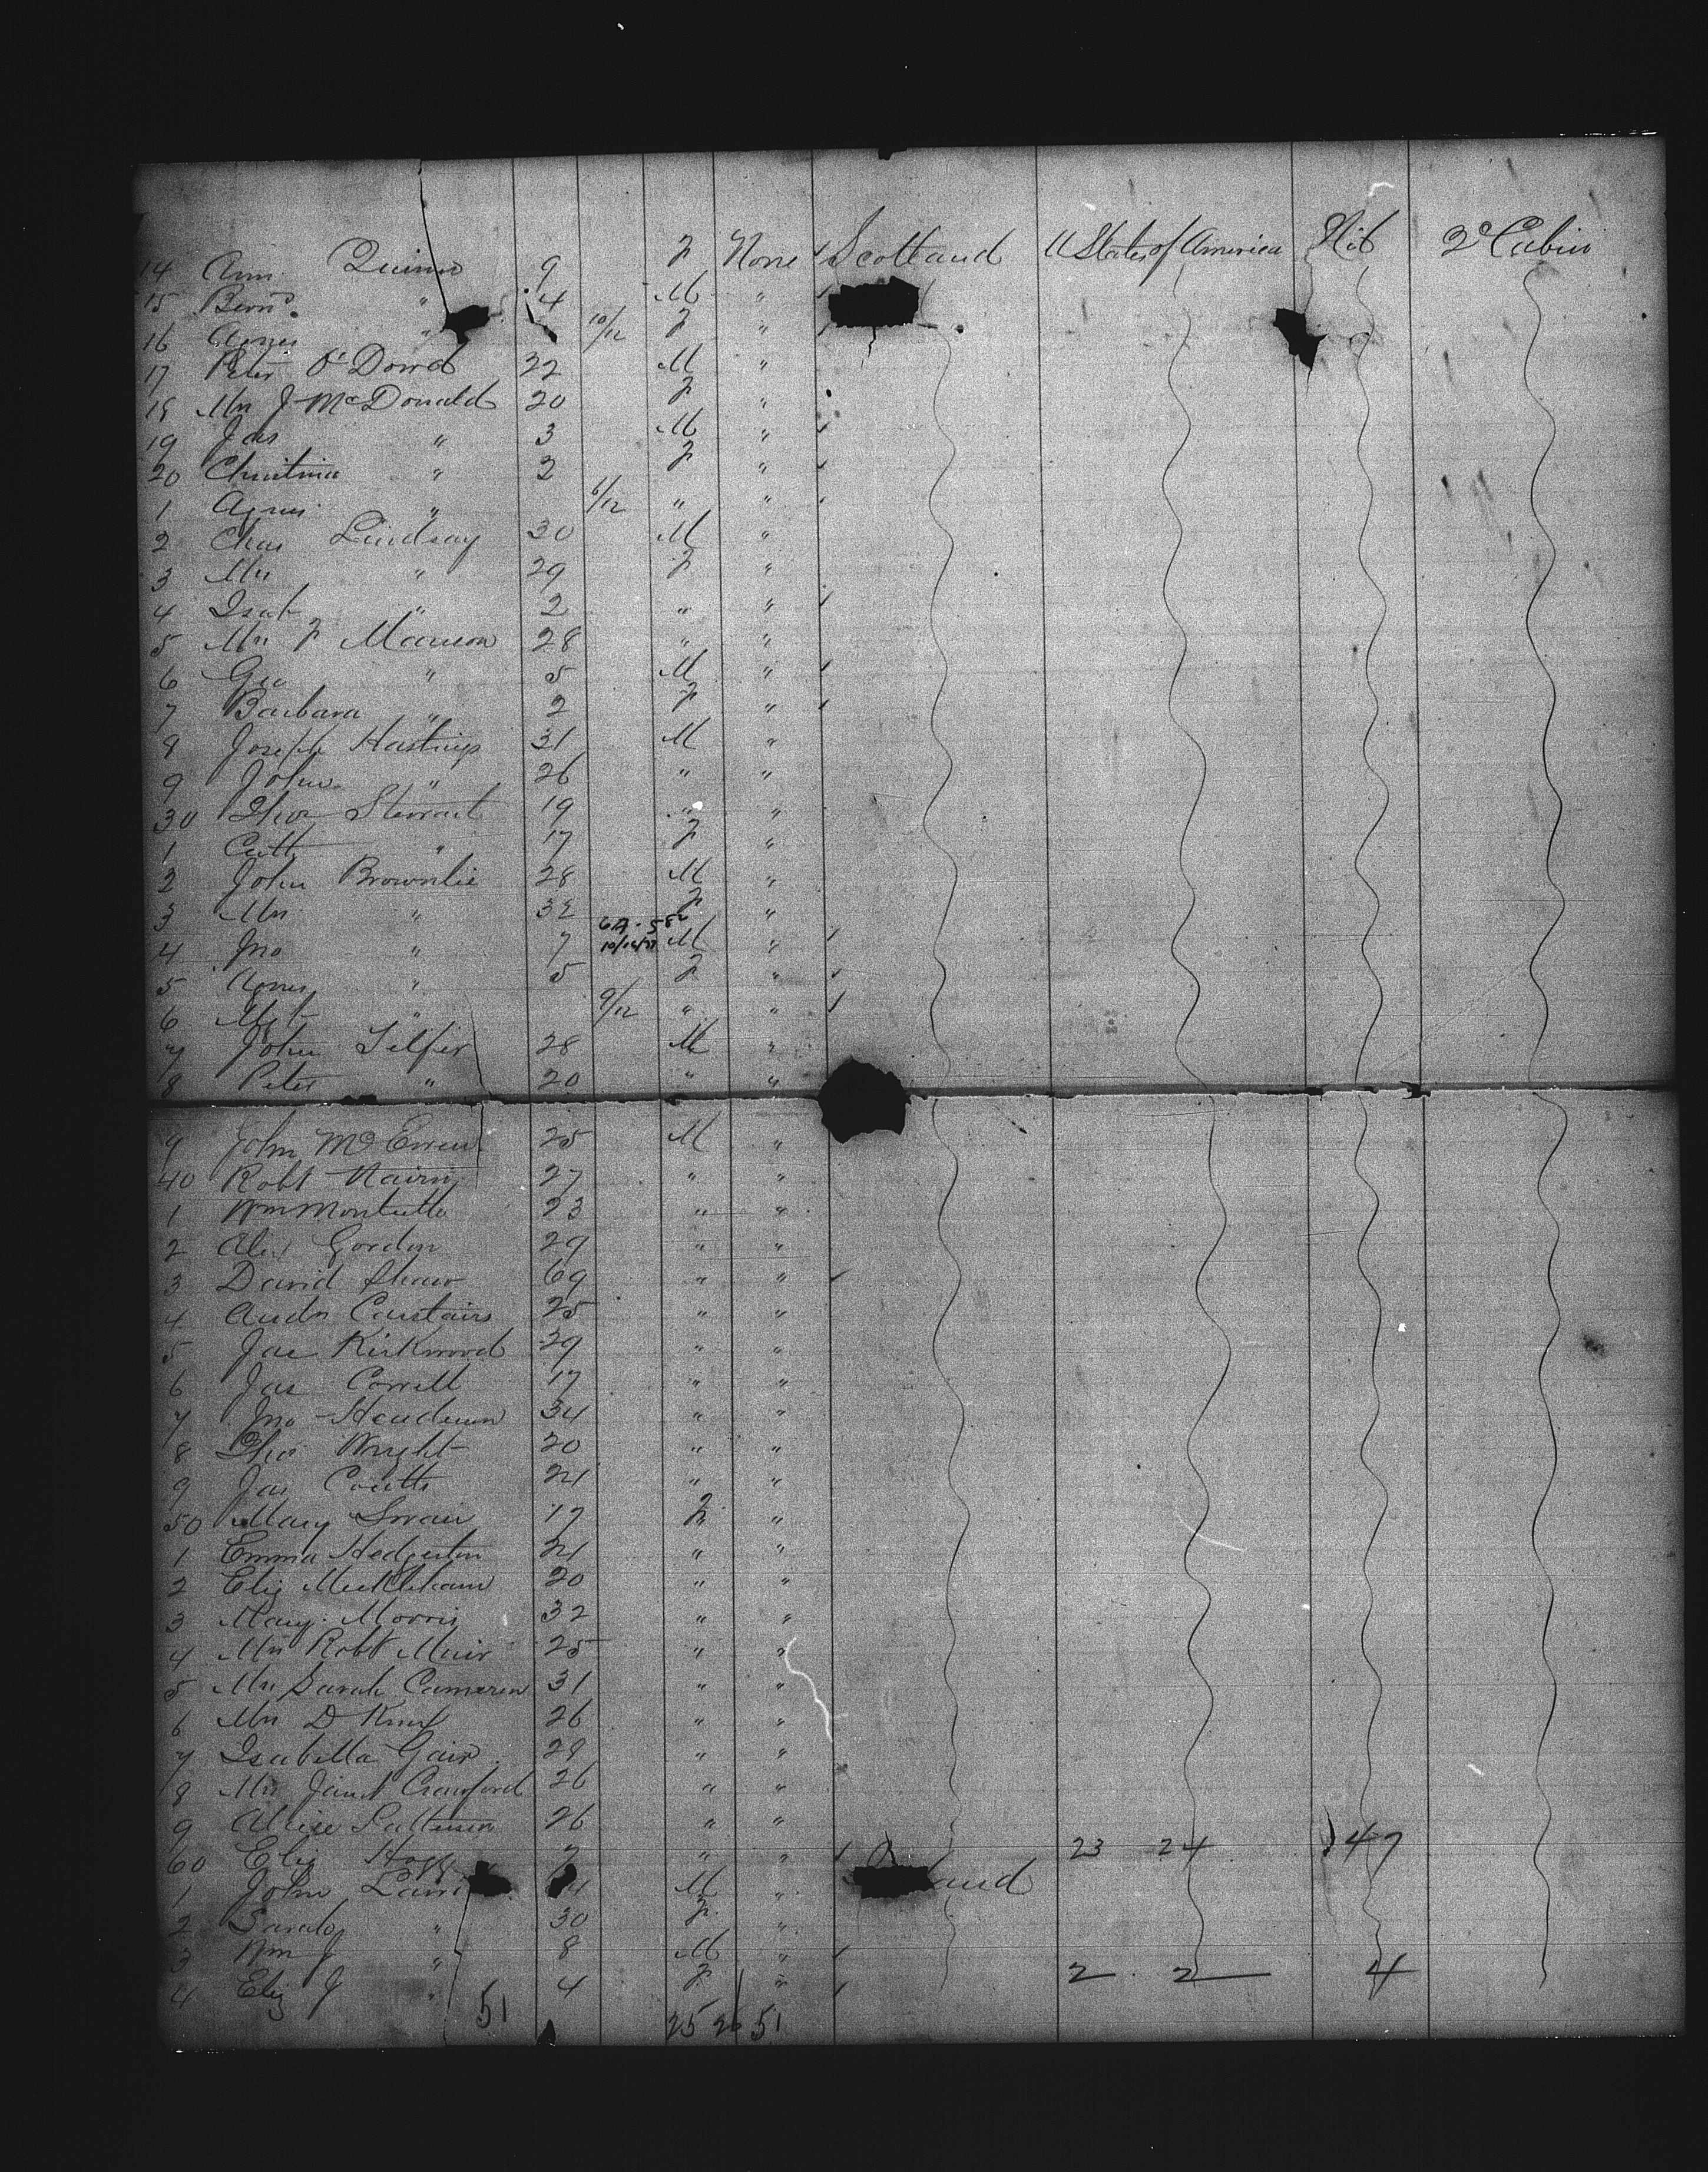 14 Ann Quinn 9 F None Scotland U States of America Nil 2d Cabin
15 Bernd " 4 M "
16 Agnes " 10/12 F "
17 Peter O'Dowd 22 M "
18 Mrs J McDonald 20 F "
19 Jas " 3 M "
20 Christina " 2 F "
1 Agnes " 6/12 " "
2 Chas Lindsay 30 M "
3 Mrs " 29 F "
4 Isab " 2 " "
5 Mrs F Manson 28 " "
6 Geo " 5 M "
7 Barbara " 2 F "
8 Joseph Hastings 31 M "
9 John " 26 " "
30 Thos Stewart 19 " "
1 Cath " 17 F "
2 John Brownlie 28 M "
3 Mrs " 32 F "
4 Jno " 7 M "
5 Agnes " 5 F "
6 Mgt " 9/12 " "
7 John Telfer 28 M "
8 Peter " 20 " "
9 John McEwen 25 M "
40 Robt Nairn 27 " "
1 Wm Monteith 23 " "
2 Alex Gordon 29 " "
3 David Shaw 69 " "
4 Andw Carstairs 25 " "
5 Jas Kirkwood 29 " "
6 Jas 17 " "
7 Jno Henderson 34 " "
8 Thos Wright 20 " "
9 Jas Coutts 21 " "
50 Mary Swan 17 F "
1 Emma 21 " "
2 Eliz 20 " "
3 Mary Morris 32 " "
4 Mrs Robt Muir 25 " "
5 Mrs Sarah Cameron 31 " "
6 Mrs D 26 " "
7 Isabella Gair 29 " "
8 Mrs Janet Crawford 26 " "
9 Patterson 26 " "
60 Eliz Hogg 7 " " 23 24 47
1 John M " land
2 Sarah " 30 F "
3 Wm J " 8 M "
4 Eliz J " 4 F " 2 2 4
51 25 26 51